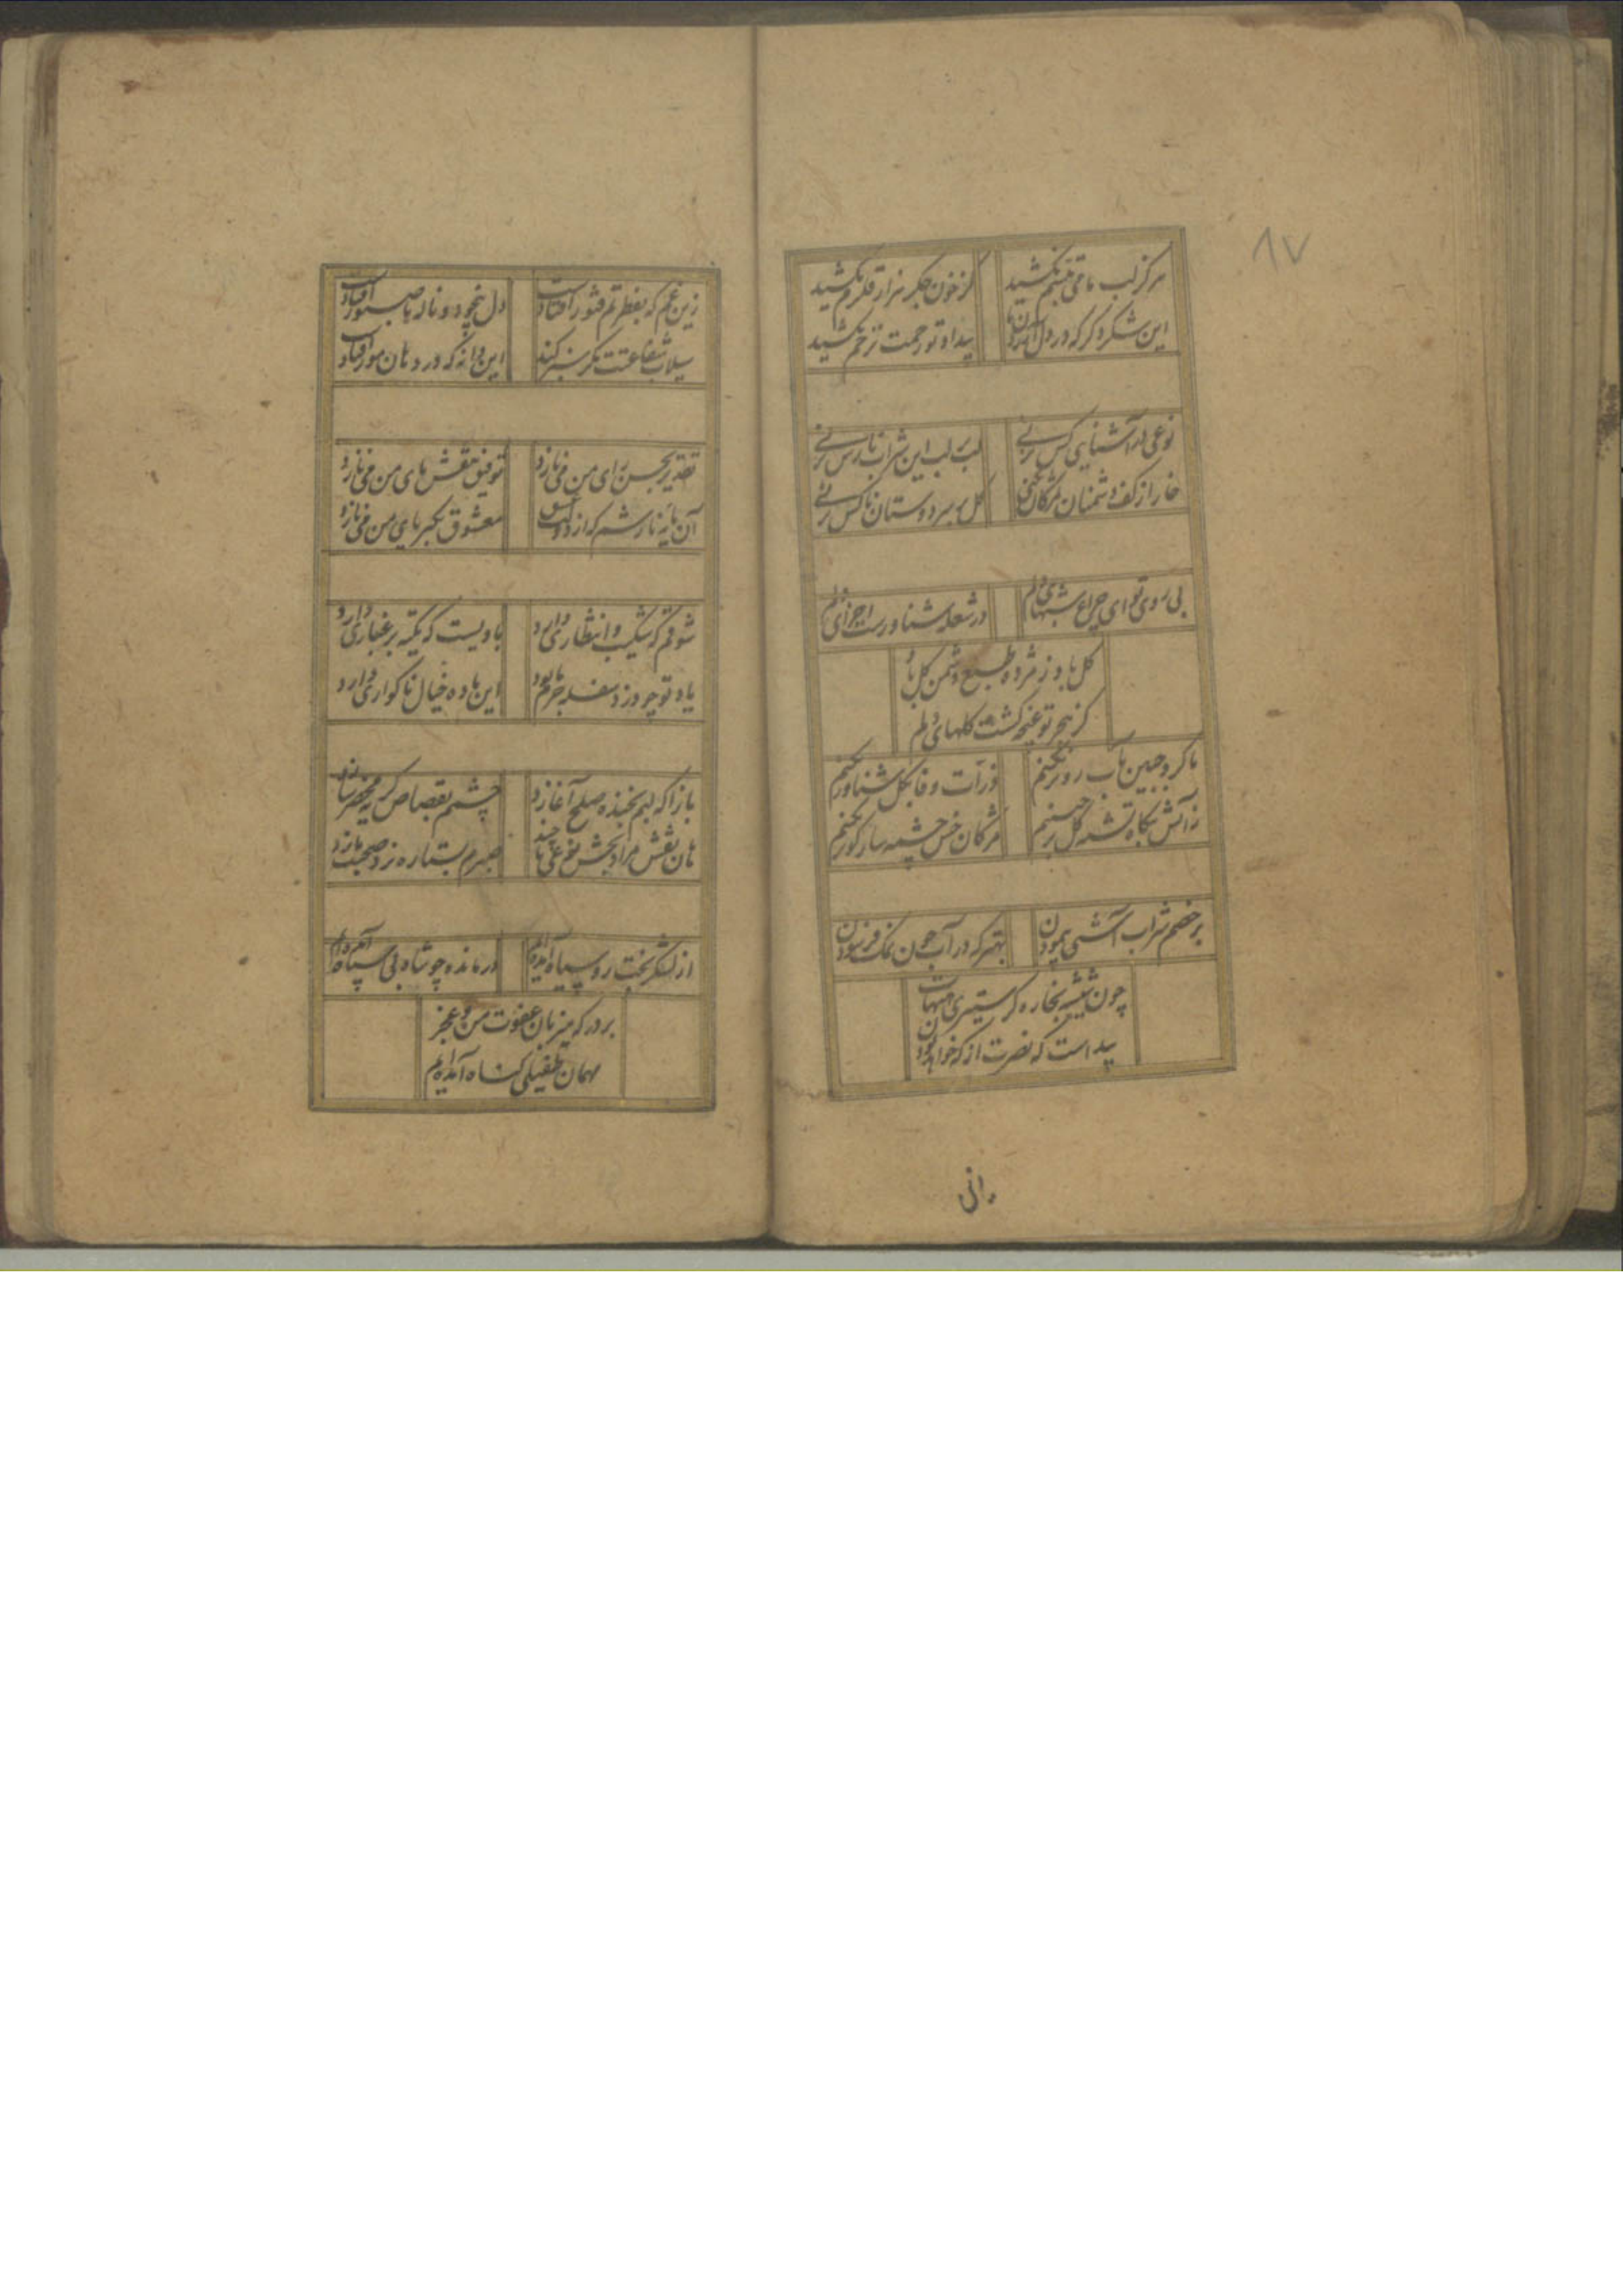 ۸۷
هرگز لب ما می تبسم نکشید
کز خون جگر هزار قلزم نکشید
این شکر دگر که در دل
بیداد تو زحمت ترحم نکشید
نوعی در آشنایی کس نزنی
لب بر لب این شراب نارس نزنی
خار از کف دشمنان بمژگان نکنی
گل بر سر دوستان ناکس نزنی
بی روی تو ای چراغ شبهای دلم
در شعله شناورست اجزای دلم
گل باد ز مژده طبع دشمن گل باد
کز هجر تو غنچه گشت گلهای دلم
ما گرد جبین بآب رو تر نکنیم
ذرات وفا بگل شناور نکنیم
ز آتش نگاه تشنه گل بر چینیم
مژگان خس چشمه سار کوثر نکنیم
بر خصم شراب آشتی پیمودن
بهتر که در آب چون نمک فرسودن
چون شیشه بخاره گر ستیزی هیهات
پیداست که نصرت از که خواهد بودن
زین غم که بفطرتم فتور افتادست
دل بیخود و ناله ناصبور افتادست
سیلاب شفاعتت مگر سبز کند
این دانه که در دهان مور افتادست
تقدیر بحسن رای من می نازد
توفیق بنقش های من می نازد
آن مایه نازشم که از دولت عشق
معشوق بکبریای من می نازد
شوقم که شکیب و انتظاری دارد
بادیست که تکیه بر غباری دارد
یاد تو چو دزد سفله
این باده خیال ناگواری دارد
باز آ که لبم بخنده صلح آغازد
چشمم بقصاص گریه
هان نقش مراد بخش نوعی تا چند
صبرم بستاره نرد صحبت بازد
از لشکر بخت رو سیاه آمده‌ایم
درمانده چو شاه بی سپاه آمده‌ایم
بر در که میزبان عفوت من و عجز
مهمان طفیلی گناه آمده‌ایم